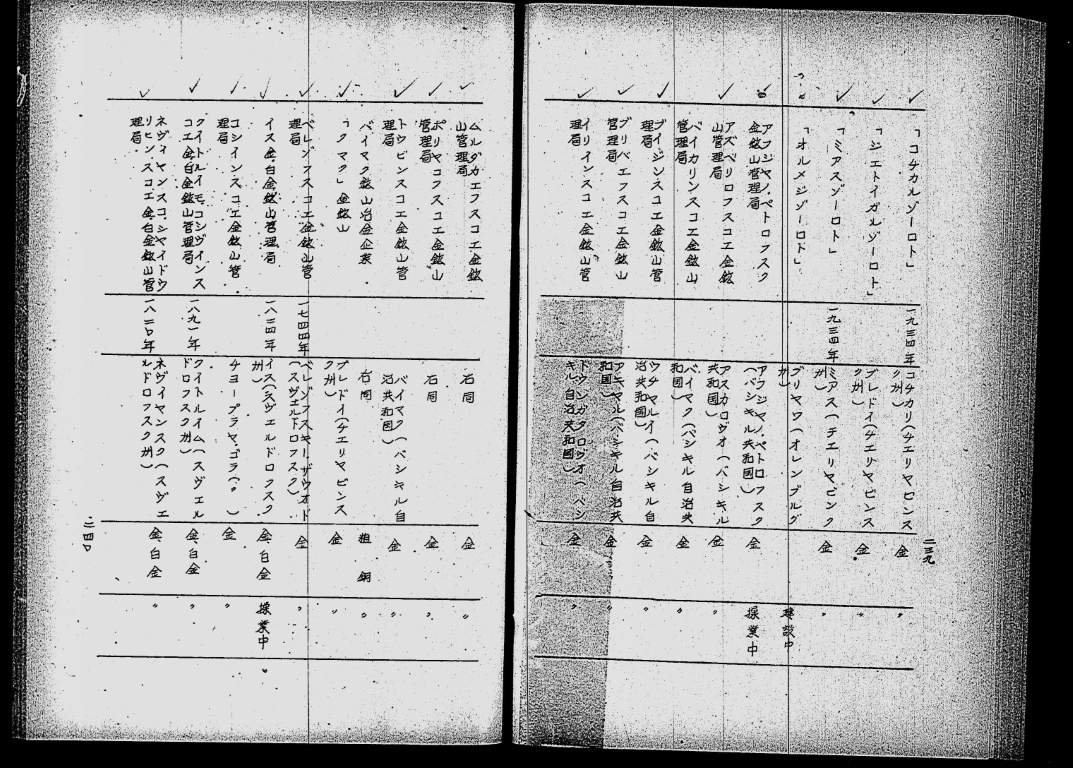 二三九
「コチカルゾーロト」 一九三四年 コチカリ(チエリヤビンス
ク州) 金 〃
「ジエトイガルゾーロト」 ブレドイ(チエリヤビンス
ク州) 金 〃
「ミアスゾーロト」 一九三四年 ミアス(チエリヤビンク
州) 金 〃
「オルメジゾーロト」 ブリヤワ(オレンブルグ
州) 建設中
アフジヤノ・ペトロフスク
金鉱山管理局 アフジヤノ・ペトロフスク
(バシキル共和國) 金 採業中
アズベリロフスコエ金鉱
山管理局 アスカロヴオ(バシキル
共和國) 金 〃
バイカリンスコエ金鉱山
管理局 バイマク(バシキル自治共
和國) 金 〃
ブイジンスコエ金鉱山
管理局 ウチヤルイ(バシキル自
治共和國) 金 〃
ブリベエフスコエ金鉱山
管理局 アキヤル(バシキル自治共
和國) 金 〃
イリインスコエ金鉱山管
理局 トウンガタロヴオ(バシ
キル自治共和國) 金 〃
ムルダカエフスコエ金鉱
山管理局 右同 金 〃
ポリヤコフスコエ金鉱山
管理局 右同 金 〃
トウビンスコエ金鉱山管
理局 バイマク(バシキル自
治共和國) 金 〃
バイマク鉱山冶金企業 右同 粗銅 〃
「クマク」金鉱山 ブレドイ(チエリヤビンス
ク州) 金 〃
ベレゾフスコエ金鉱山管
理局 一七四四年 ベレゾフスキーザヴオド
(スヴエルドロフスク) 金 〃
イス金・白金鉱山管理局 一八二四年 イス(スヴエルドロフスク
州) 金、白金 採業中
コシインスコエ金鉱山管
理局 チヨープラヤ・ゴラ(〃) 金 〃
クイトルイモコシヴインス
コエ金白金鉱山管理局 一八九一年 クイトルイム(スヴエル
ドロフスク州) 金、白金 〃
ネヴイヤンスコ・シヤイドウ
リヒンスコエ金白金鉱山管
理局 一八二〇年 ネヴイヤンスク(スヴエ
ルドロフスク州) 金、白金 〃
二四〇